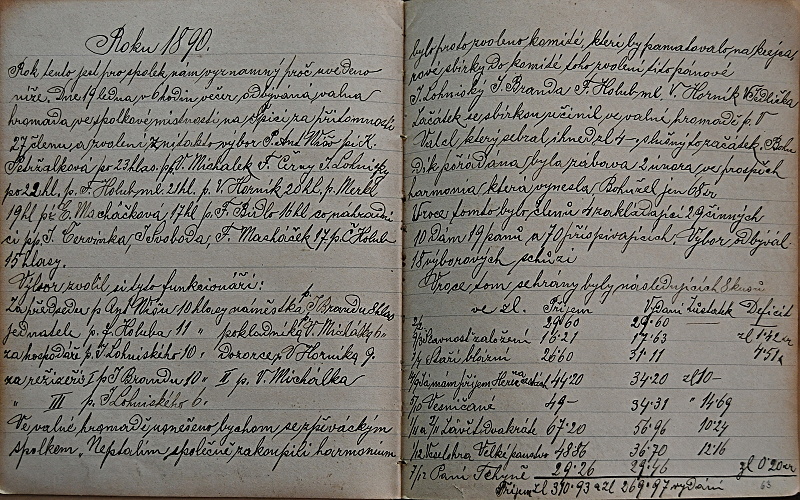 Roku 1890.
Rok tento jest pro spolek nám významný proč uvedeno
níže. Dne 19 ledna v 6 hodin večer odbývána valná
hromada ve spolkové místnosti na čipici za přítomnosti
27 členů a zvoleni z nítakto výbor P. Ant Mišo pí K.
Petržalková po 23 hlas. pp. V. Michálek F. Černý J. Lohniský
po 22 hl. p. F. Holub ml. 21 hl. p. V. Horník 20 hl. p. Merkl
19 hl pí E. Macháčkova 17 hl p. F. Bidlo 16 hl co náhradní
ci pp. J. Červinka, J Svoboda, F. Macháček 17 p. Č Holub
15 hlasy.
Výbor zvolil si tyto funkcionáře:
Za předsedu p Ant Mišu 10 hlasy náměstka p. J Brandu 8 hlas
jednatele p. F. Holuba 11 " pokladníka V. Michálka 6 "
za hospodáře p. J Lohniského 10 " Dozorce p V Horníka 9.
za režiséři I p J Brandu 10 " II p. V. Michálka
" III p. J Lohniského 6 "
Ve valné hromadě usnešeno bychom se zpěváckým
spolkem „Neptalim společně zakoupili harmonium
bylo proto zvoleno komité, které by pamatovalo na
rové sbírky Do komité toho zvoleni tito pánové
J. Lohniský J. Branda F. Holub ml. V. Horník
Začátek se sbírkou učinil ve valné hromadě p. V
Vatcl, který sebral ihned zl 4 slušný to začátek,
Dík pořádana byla zábava 2 února ve prospěch
harmonia která vynesla Bohužel jen 68 kr
V roce tomto bylo členů 4 zakládající 29 činných
10 dám 19 pánů a 70 přispívajících. Výbor odbýval
18 výborových schůzí
V roce tom sehrány byly následujících 8 kusů
ve zl. Příjem Vydání Zůstatek Deficit
2/2 29·60 29·60 —
9/3 Slavnost založení 16·21 17·63 zl 1·42 kr
7/4 Staří blázni 26·60 31·11 7·51 k
Já mám příjem 44·20 34·20 zl 10—
5/10 Vesničané 49— 34·31 " 14·69
Závěť dvakráte 67·20 56·96 10·24
1/12 Veselohra Velké panstvo 48·86 36·70 12·16
7/12 Paní Tchyně 29·26 29·46 zl 0·20 kr
Příjem zl 310·93 a zl 269·97 vydání
63